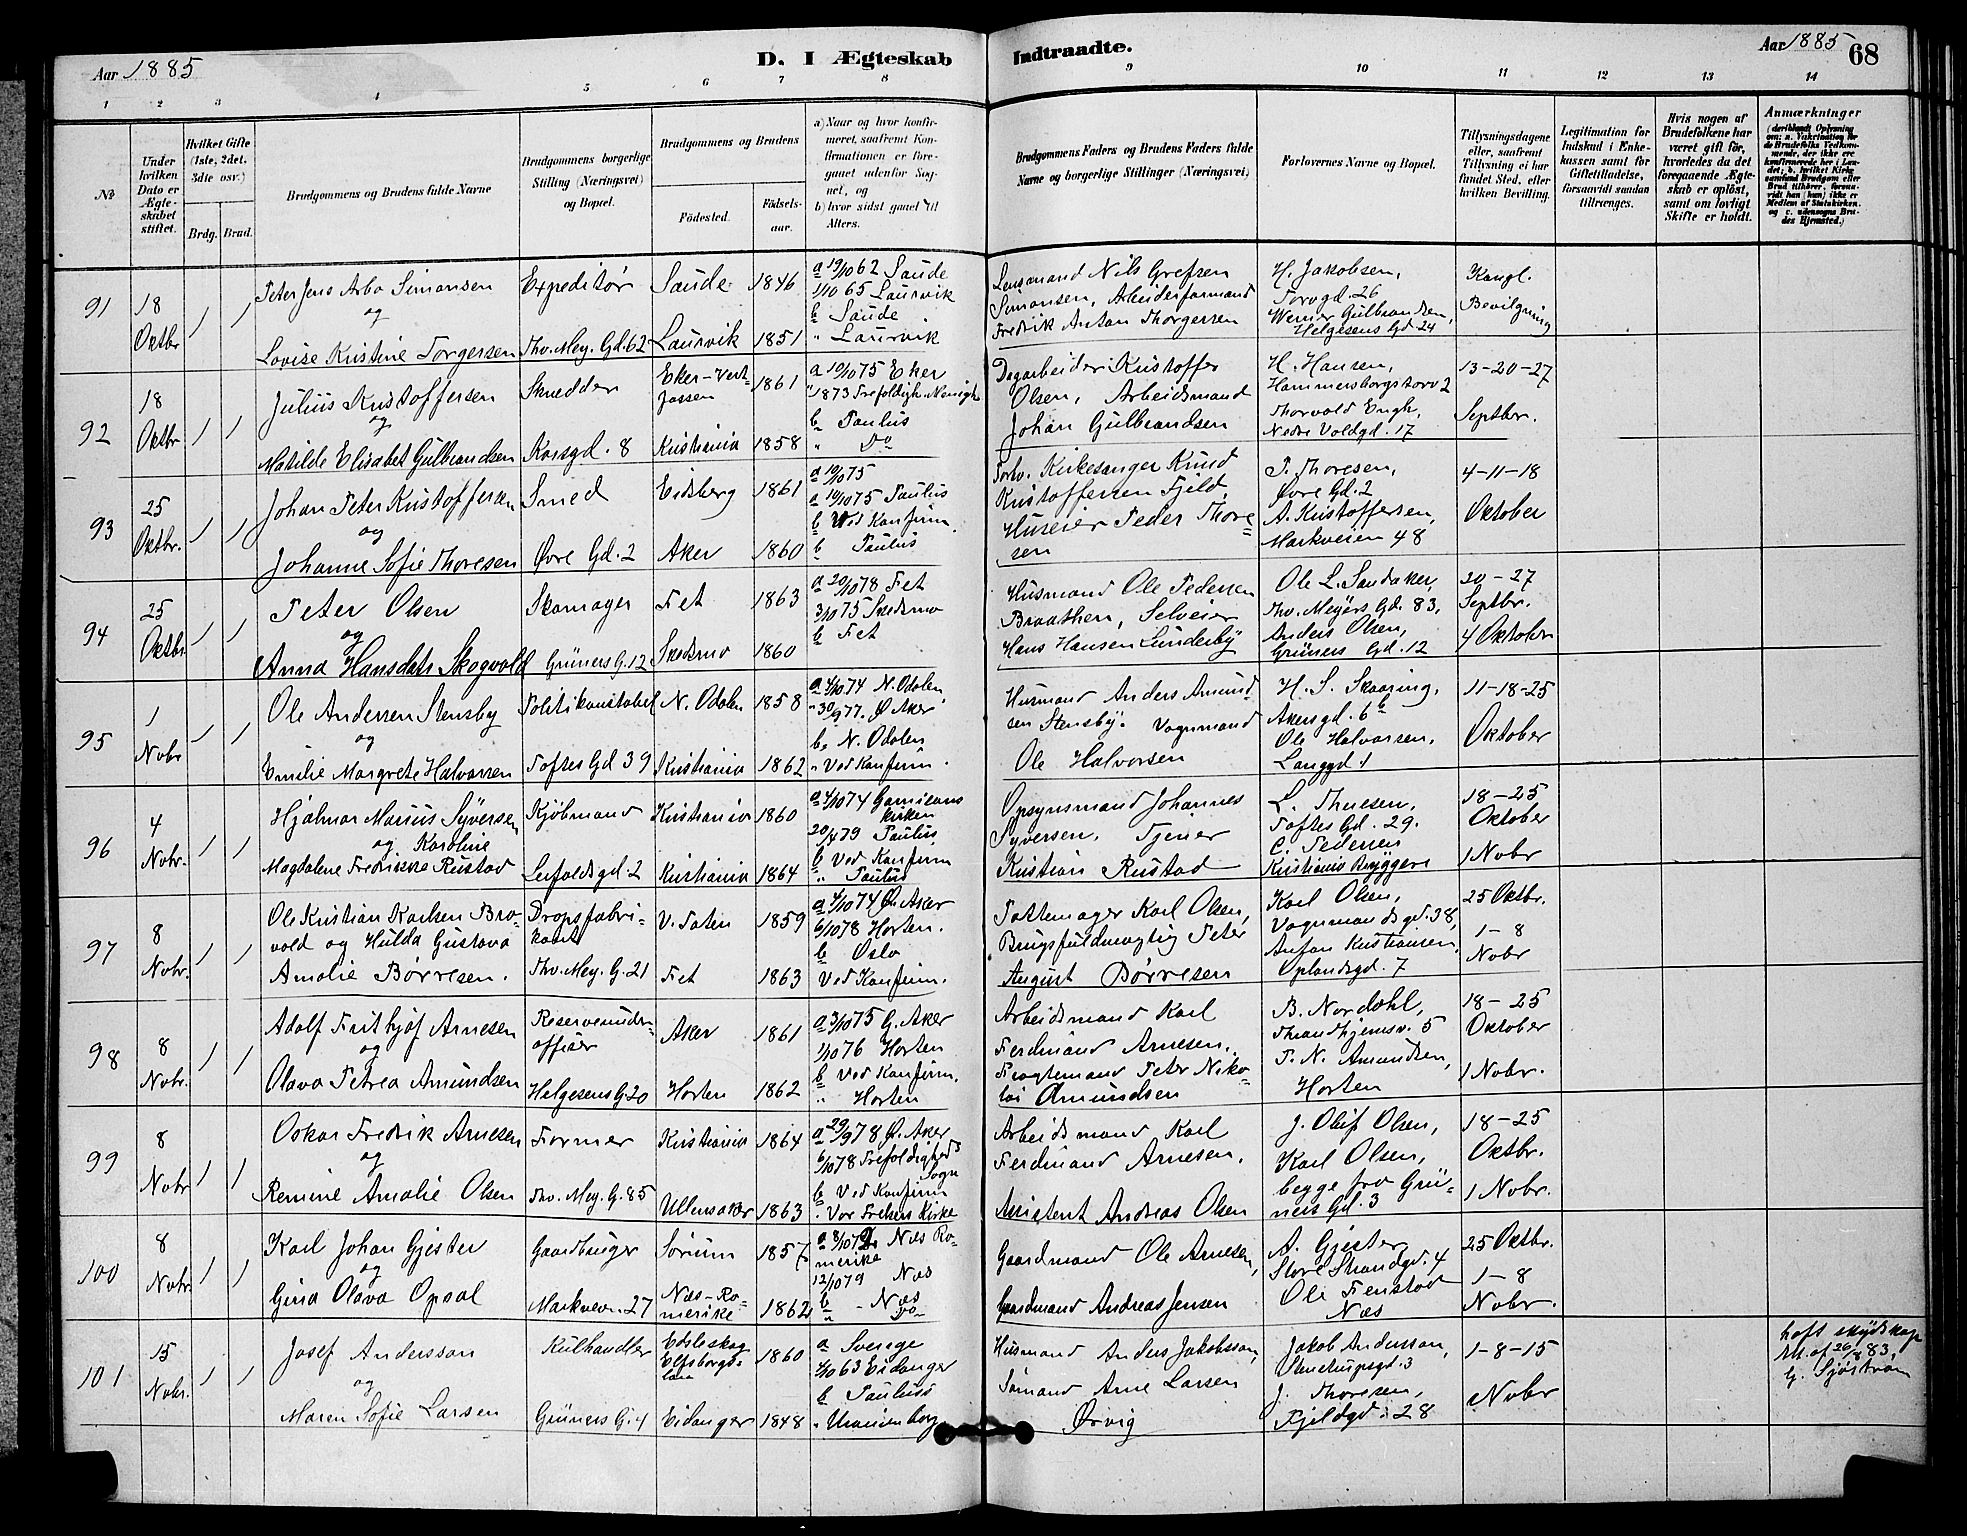 Aar 1885
D. I Ægteskab
Indtraadte.
Aar 1885
68
1 2 3 4 5 6 7 8 9 10 11 12 13 14
№
Under hvilken Dato er Ægteskabet stiftet.
Hvilket Gifte (1ste, 2det, 3die osv.)
Brdg. Brud.
Brudgommens og Brudens fulde Navne
Brudgommens borgerlige Stilling (Næringsvei) og Bopæl.
Brudgommens og Brudens
Fødested.
Fødselsaar.
a) Naar og hvor konfirmeret, saafremt Konfirmationen er foregaaet udenfor Sognet, og
b) hvor sidst gaaet til Alters.
Brudgommens Faders og Brudens Faders fulde Navne og borgerlige Stillinger (Næringsvei)
Forlovernes Navne og Bopæl.
Tillysningsdagene eller, saafremt Tillysning ei har fundet Sted, efter hvilken Bevilling.
Legitimation for Indskud i Enkekassen samt for Giftetilladelse, forsaavidt saadan tiltrænges.
Hvis nogen af Brudefolkene har været gift før, hvorledes da det foregaaende Ægteskab er opløst, samt om lovligt Skifte er holdt.
Anmærkninger
91
18 Oktbr
1 1
Peter Jens Arbo Simonsen
og
Lovise Kristine Torgersen
Expeditør
Thv. Mey. Gd. 62
Saude
Laurvik
1846
1851
a 19/10 62 Saude
1/10 65 Laurvik
b Saude
" Laurvik
Lensmand Nils Grefsen
Simonsen, Arbeidsformand
Fredrik Anton Thorgersen
H. Jakobsen,
Torvgd. 26
Werner Gulbrandsen,
Helgesens Gd. 24
Kongl.
Bevilgning
92
18 Oktbr
1 1
Julius Kristoffersen
og
Matilde Elisabet Gulbrandsen
Skrædder
Korsgd. 8
Eker-Vest-
fossen
Kristiania
1861
1858
a 10/10 75 Eker
" 1873 Trefoldigh. Menigh.
b Paulus
" Do
Dagarbeider Kristoffer
Olsen, Arbeidsmand
Johan Gulbrandsen
H. Hansen,
Hammersborgstorv 2
Thorvald Engh,
Nedre Voldgd. 17
13-20-27
Septbr.
93
25 Oktbr.
1 1
Johan Peter Kristoffersen
og
Johanne Sofie Thoresen
Smed
Øvre Gd. 2
Eidsberg
Aker
1861
1860
a 10/10 75
a 10/10 75 Paulus
b Ved Konfirm.
b Paulus
Forhv. Kirkesanger Knud
Kristoffersen Fjeld,
Huseier Peder Thore=
sen
P. Thoresen,
Øvre Gd. 2
A. Kristoffersen,
Markveien 48
4-11-18
Oktober
94
25 Oktbr.
1 1
Peter Olsen
og
Anna Hansdatr Skogvold
Skomager
Grüners G. 12
Fet
Skedsmo
1863
1860
a 20/10 78 Fet
3/10 75 Skedsmo
b Fet
Husmand Ole Pedersen
Braathen, Selveier
Hans Hansen Lunderby
Ole L. Sandaker,
Thv. Meyers Gd. 83,
Anders Olsen,
Grüners Gd. 12
20-27
Septbr.
4 Oktober
95
1 Nobr
1 1
Ole Andersen Stensby
og
Emilie Margrete Halvorsen
Politikonstabel
Toftes Gd 39
N. Odalen
Kristiania
1858
1862
a 4/10 74 N. Odalen
" 30/9 77. Ø. Aker
b. N. Odalen
" Ved Konfirm.
Husmand Anders Amund-
sen Stensby. Vognmand
Ole Halvorsen
H. S. Skaaring,
Akersgd. 6b
Ole Halvorsen,
Langgd. 1
11-18-25
Oktober
96
4 Nobr.
1 1
Hjalmar Marius Syversen
og Karoline
Magdalene Fredrikke Rustad
Kjøbmand
Leifoldsgd. 2
Kristiania
Kristiania
1860
1864
a 4/10 74 Garnisons
kirken
20/4 79 Paulus
b Ved Konfirm
" Paulus
Opsynsmand Johannes
Syversen, Tjener
Kristian Rustad
L. Thuesen,
Toftes Gd. 29.
C. Pedersen
Kristiania Bryggeri
18-25
Oktober
1 Nobr
97
8 Nobr.
1 1
Ole Kristian Karlsen Bro-
vold og Hulda Gustava
Amalie Børresen.
Dropsfabri-
kant
Thv. Mey. G. 21
V. Toten
Fet
1859
1863
a 4/10 74 Ø. Aker
6/10 78 Horten.
b Oslo
Ved Konfirm.
Pottemager Karl Olsen,
Brugsfuldmægtig Peter
August Børresen
Karl Olsen,
Vognmandsgd. 38,
Anton Kristiansen,
Oplandsgd. 7
25 Oktbr.
1-8
Nobr
98
8 Nobr.
1 1
Adolf Frithjof Arnesen
og
Olava Petrea Amundsen
Reserveunder-
officer
Helgesens G. 20
Aker
Horten
1861
1862
a 3/10 75 G. Aker
1/10 76 Horten
b Ved Konfirm.
" Horten
Arbeidsmand Karl
Ferdinand Arnesen.
Fragtemand Peter Niko=
lai Amundsen
B. Nordahl,
Thrandhjemsv. 5
P. N. Amundsen,
Horten
18-25
Oktober
1 Nobr.
99
8 Nobr
1 1
Oskar Fredrik Arnesen
og
Remine Amalie Olsen
Former
Thv. Mey. G. 85
Kristiania
Ullensaker
1864
1863
a 29/9 78 Ø. Aker
6/10 78 Trefoldigheds
Sogn
b Ved Konfirm
. Vor Frelsers Kirke
Arbeidsmand Karl
Ferdinand Arnesen.
Assistent Andreas Olsen
J. Oluf Olsen,
Karl Olsen,
begge fra Grü-
ners Gd. 3
18-25
Oktbr.
1 Nobr.
100
8 Nobr.
1 1
Karl Johan Gjester
og
Gina Olava Opsal
Gaardbruger
Markveien. 27
Sørum
Næs-Ro=
merike
1857
1862
a 8/10 72 Næs Ro-
merike
12/10 79 Næs
b - Næs
" Do
Gaardmand Ole Arnesen,
Gaardmand Andreas Jensen
A. Gjester,
Store Strandgd. 4
Ole Fenstad
Næs
25 Oktbr.
1-8
Nobr.
101
15 Nobr.
1 1
Josef Andersson
og
Maren Sofie Larsen
Kulhandler
Grüners G. 4
Edsleskog
Elfsborgs-
län
Eidanger
1860
1848
a Sverige
1/10 63 Eidanger
b Paulus
" Uranienborg
Husmand Anders Jakobsson,
Sømand Arne Larsen
Ørvig
Jakob Andersson,
Stenstrupsgd. 3
J. Thoresen,
Fjeldgd. 28
1-8-15
Nobr
haft skydskop
Att. af 26/8 83,
G. Sjöström